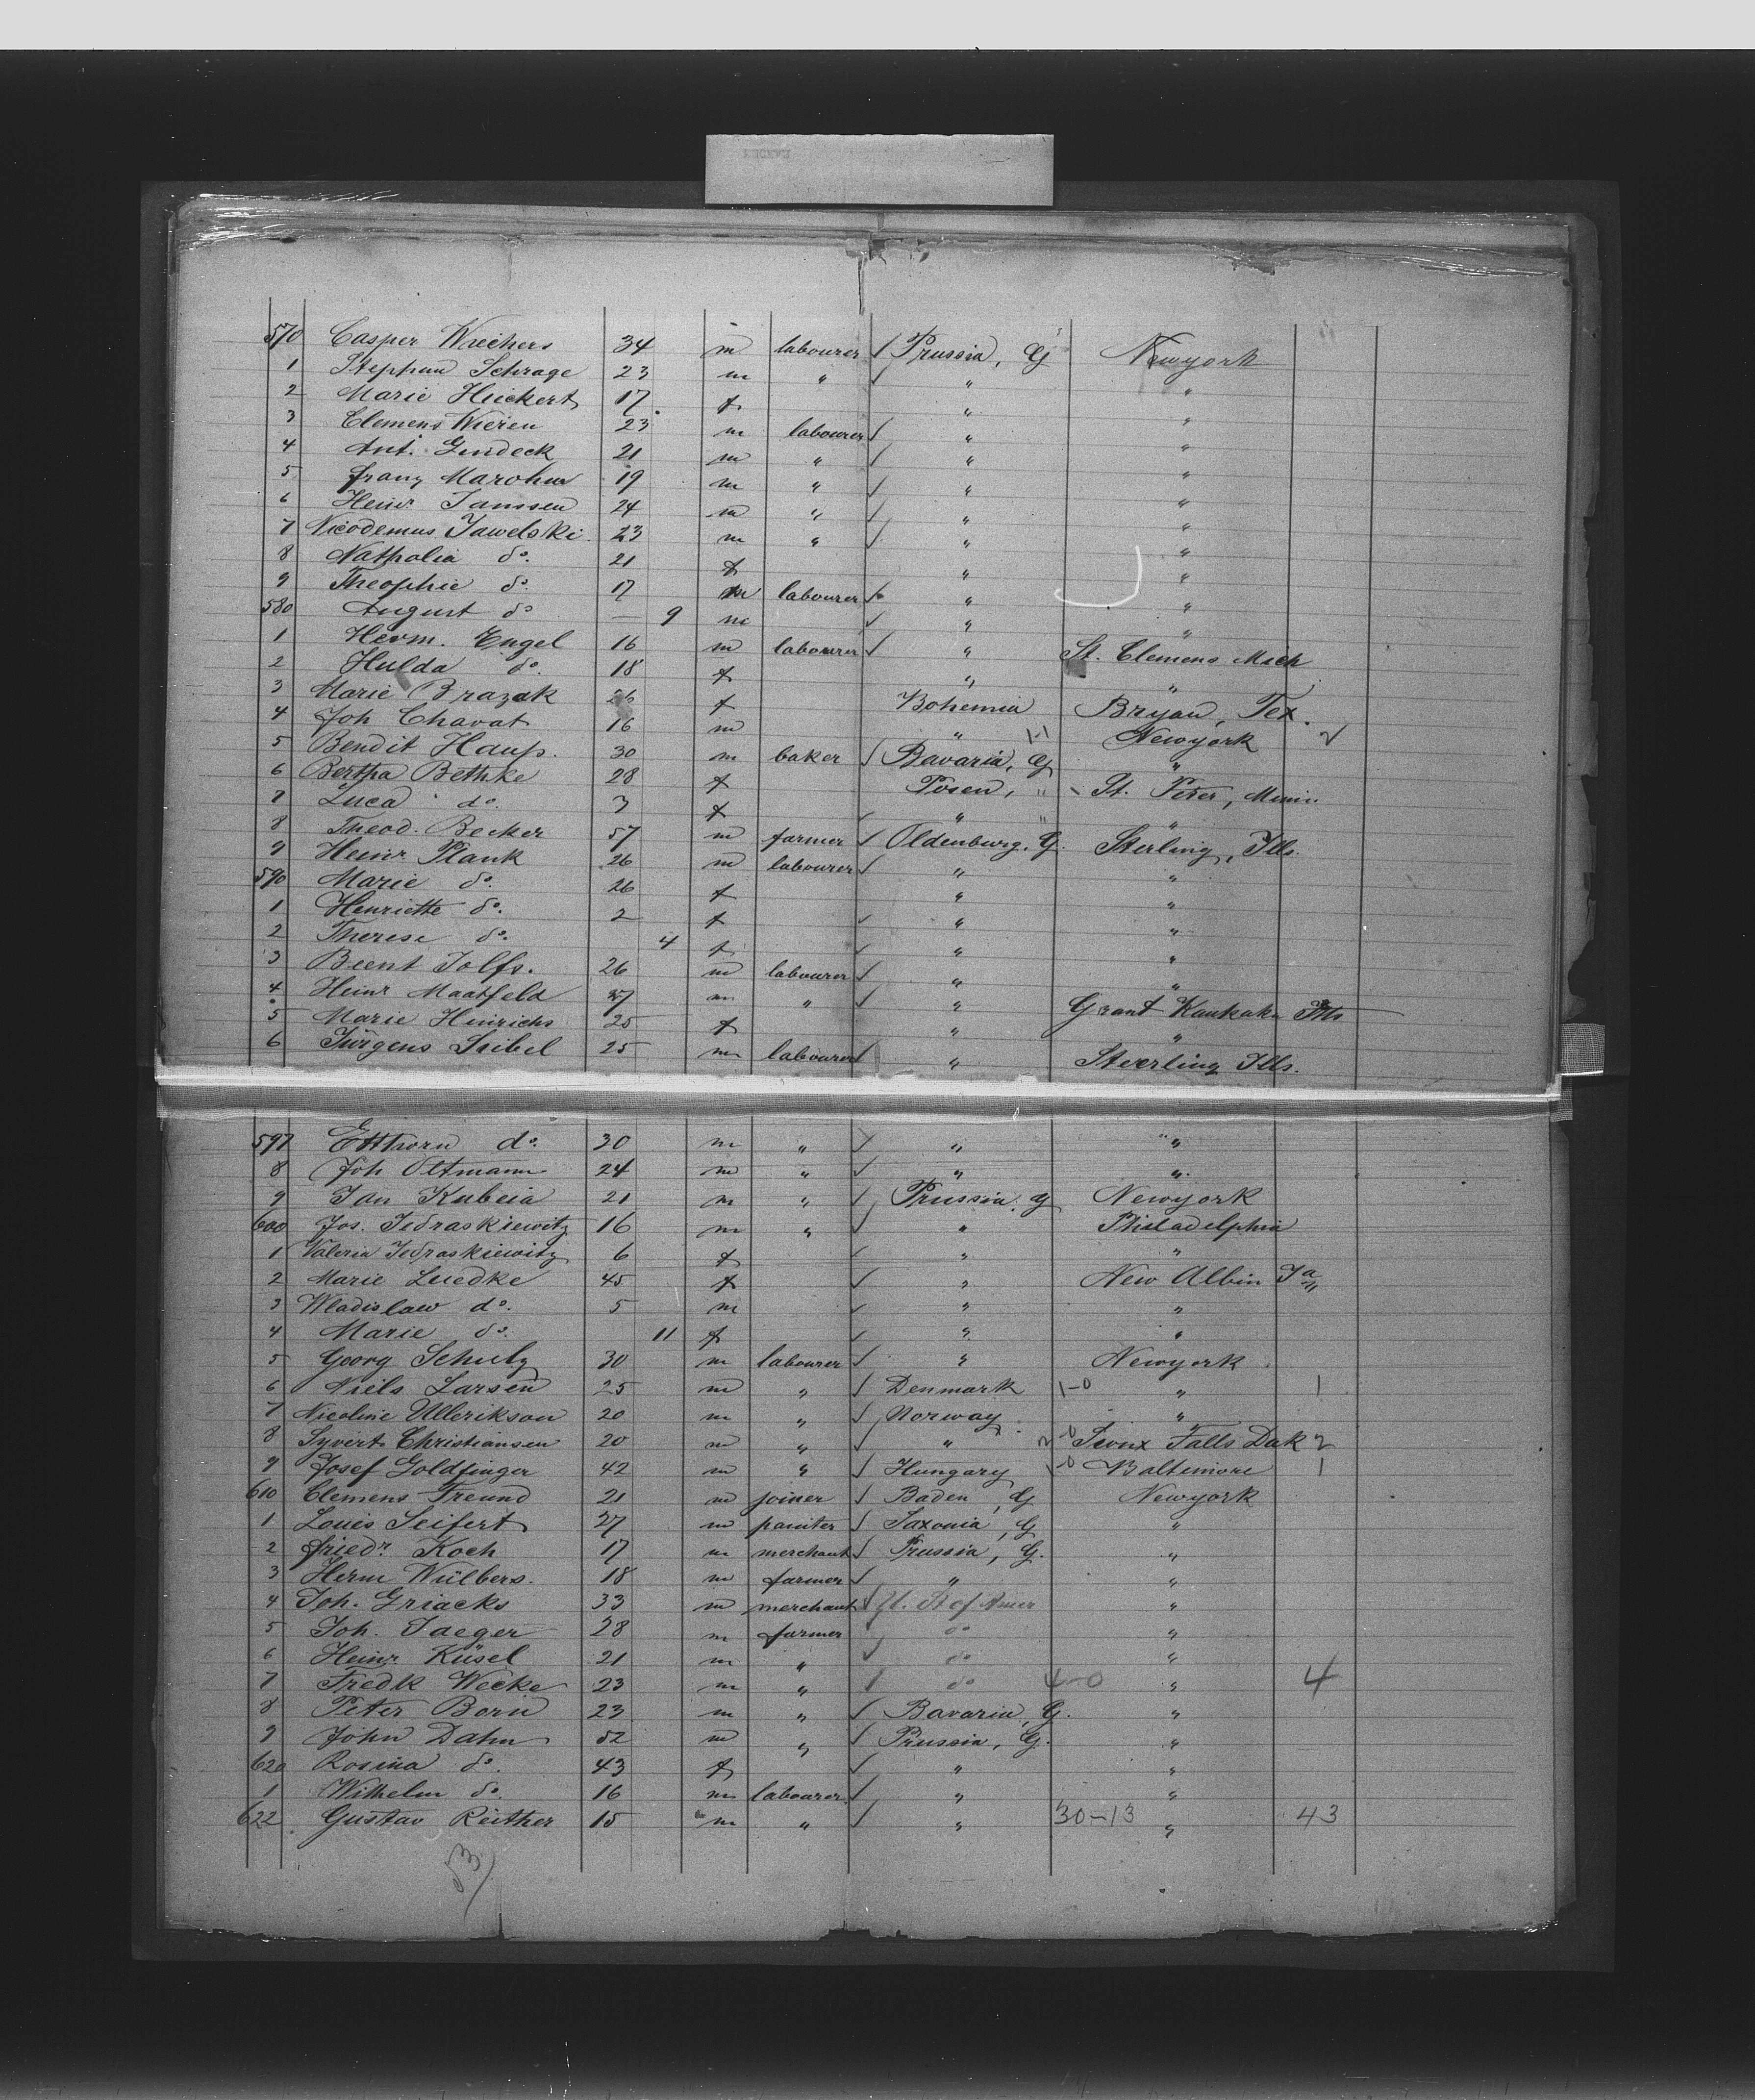 570 Casper Wiechers 34 m labourer √ Prussia, G Newyork
1 Stephan Schrage 23 m " √ " "
2 Marie Heickert 17 f " "
3 Clemens Wieren 23 m labourer √ " "
4 Ant. Gendeck 21 m " √ " "
5 Franz Marohn 19 m " √ " "
6 Heinr Janssen 24 m " √ " "
7 Nicodemus Jawelski 23 m " √ " "
8 Nathalia do. 21 f " "
9 Theophie do. 17 m labourer √ " "
580 August do — 9 m √ " "
1 Herm. Engel 16 m labourer √ " St. Clemens Mich
2 Hulda do. 18 f " "
3 Marie Brazak 26 f Bohemia Bryan, Tex.
4 Joh Chavat 16 m " 1-1 Newyork 2
5 Bendit Haup. 30 m baker √ Bavaria, G "
6 Bertha Bethke 28 f Posen, " St. Peter, Minn.
7 Luca do. 3 f √ " " "
8 Theod. Becker 57 m farmer √ Oldenburg, G. Sterling, Ills.
9 Heinr Plank 26 m labourer √ " "
590 Marie do. 26 f " "
1 Henriette do. 2 f √ " "
2 Therese do. 4 f √ " "
3 Beent Tolfs. 26 m labourer √ " "
4 Heinr Maatfeld 27 m " √ " Grant Kankak. Ills
5 Marie Hinrichs 25 f " "
6 Jürgens Seibel 25 m labourer √ " Steerling Ills.
597 Etthorn do. 30 m " √ " "
8 Joh Oltmann 24 m " √ " "
9 Jan Kubeia 21 m " √ Prussia, G Newyork
600 Jos. Jedraskiewitz 16 m " √ " Philadelphia
1 Valeria Jedraskiewitz 6 f √ " "
2 Marie Luedke 45 f √ " New Albin Ia
3 Wladislaw do. 5 m √ " "
4 Marie do. 11 f √ " "
5 Georg Schulz 30 m labourer √ " Newyork
6 Niels Larsen 25 m " √ Denmark 1-0 " 1
7 Nicoline Ullerikson 20 m " √ Norway "
8 Syvert Christiansen 20 m " √ " 2-0 Sioux Falls Dak 2
9 Josef Goldfinger 42 m " √ Hungary 1-0 Baltimore 1
610 Clemens Freund 21 m joiner √ Baden, G Newyork
1 Louis Seifert 27 m painter √ Saxonia, G "
2 Friedr. Koch 17 m merchant √ Prussia, G. "
3 Herm Wülbers. 18 m farmer √ " "
4 Joh. Griacks 33 m merchant √ U. St. of Amer "
5 Joh. Jaeger 28 m farmer do "
6 Heinr. Küsel 21 m " √ do "
7 Fredk Wecke 23 m " √ do 4-0 " 4
8 Peter Born 23 m " √ Bavaria, G. "
9 John Dahn 52 m " √ Prussia, G. "
620 Rosina do. 43 f √ " "
1 Wilhelm do. 16 m labourer. √ " "
622 Gustav Reither 15 m " √ " 30-13 " 43
53